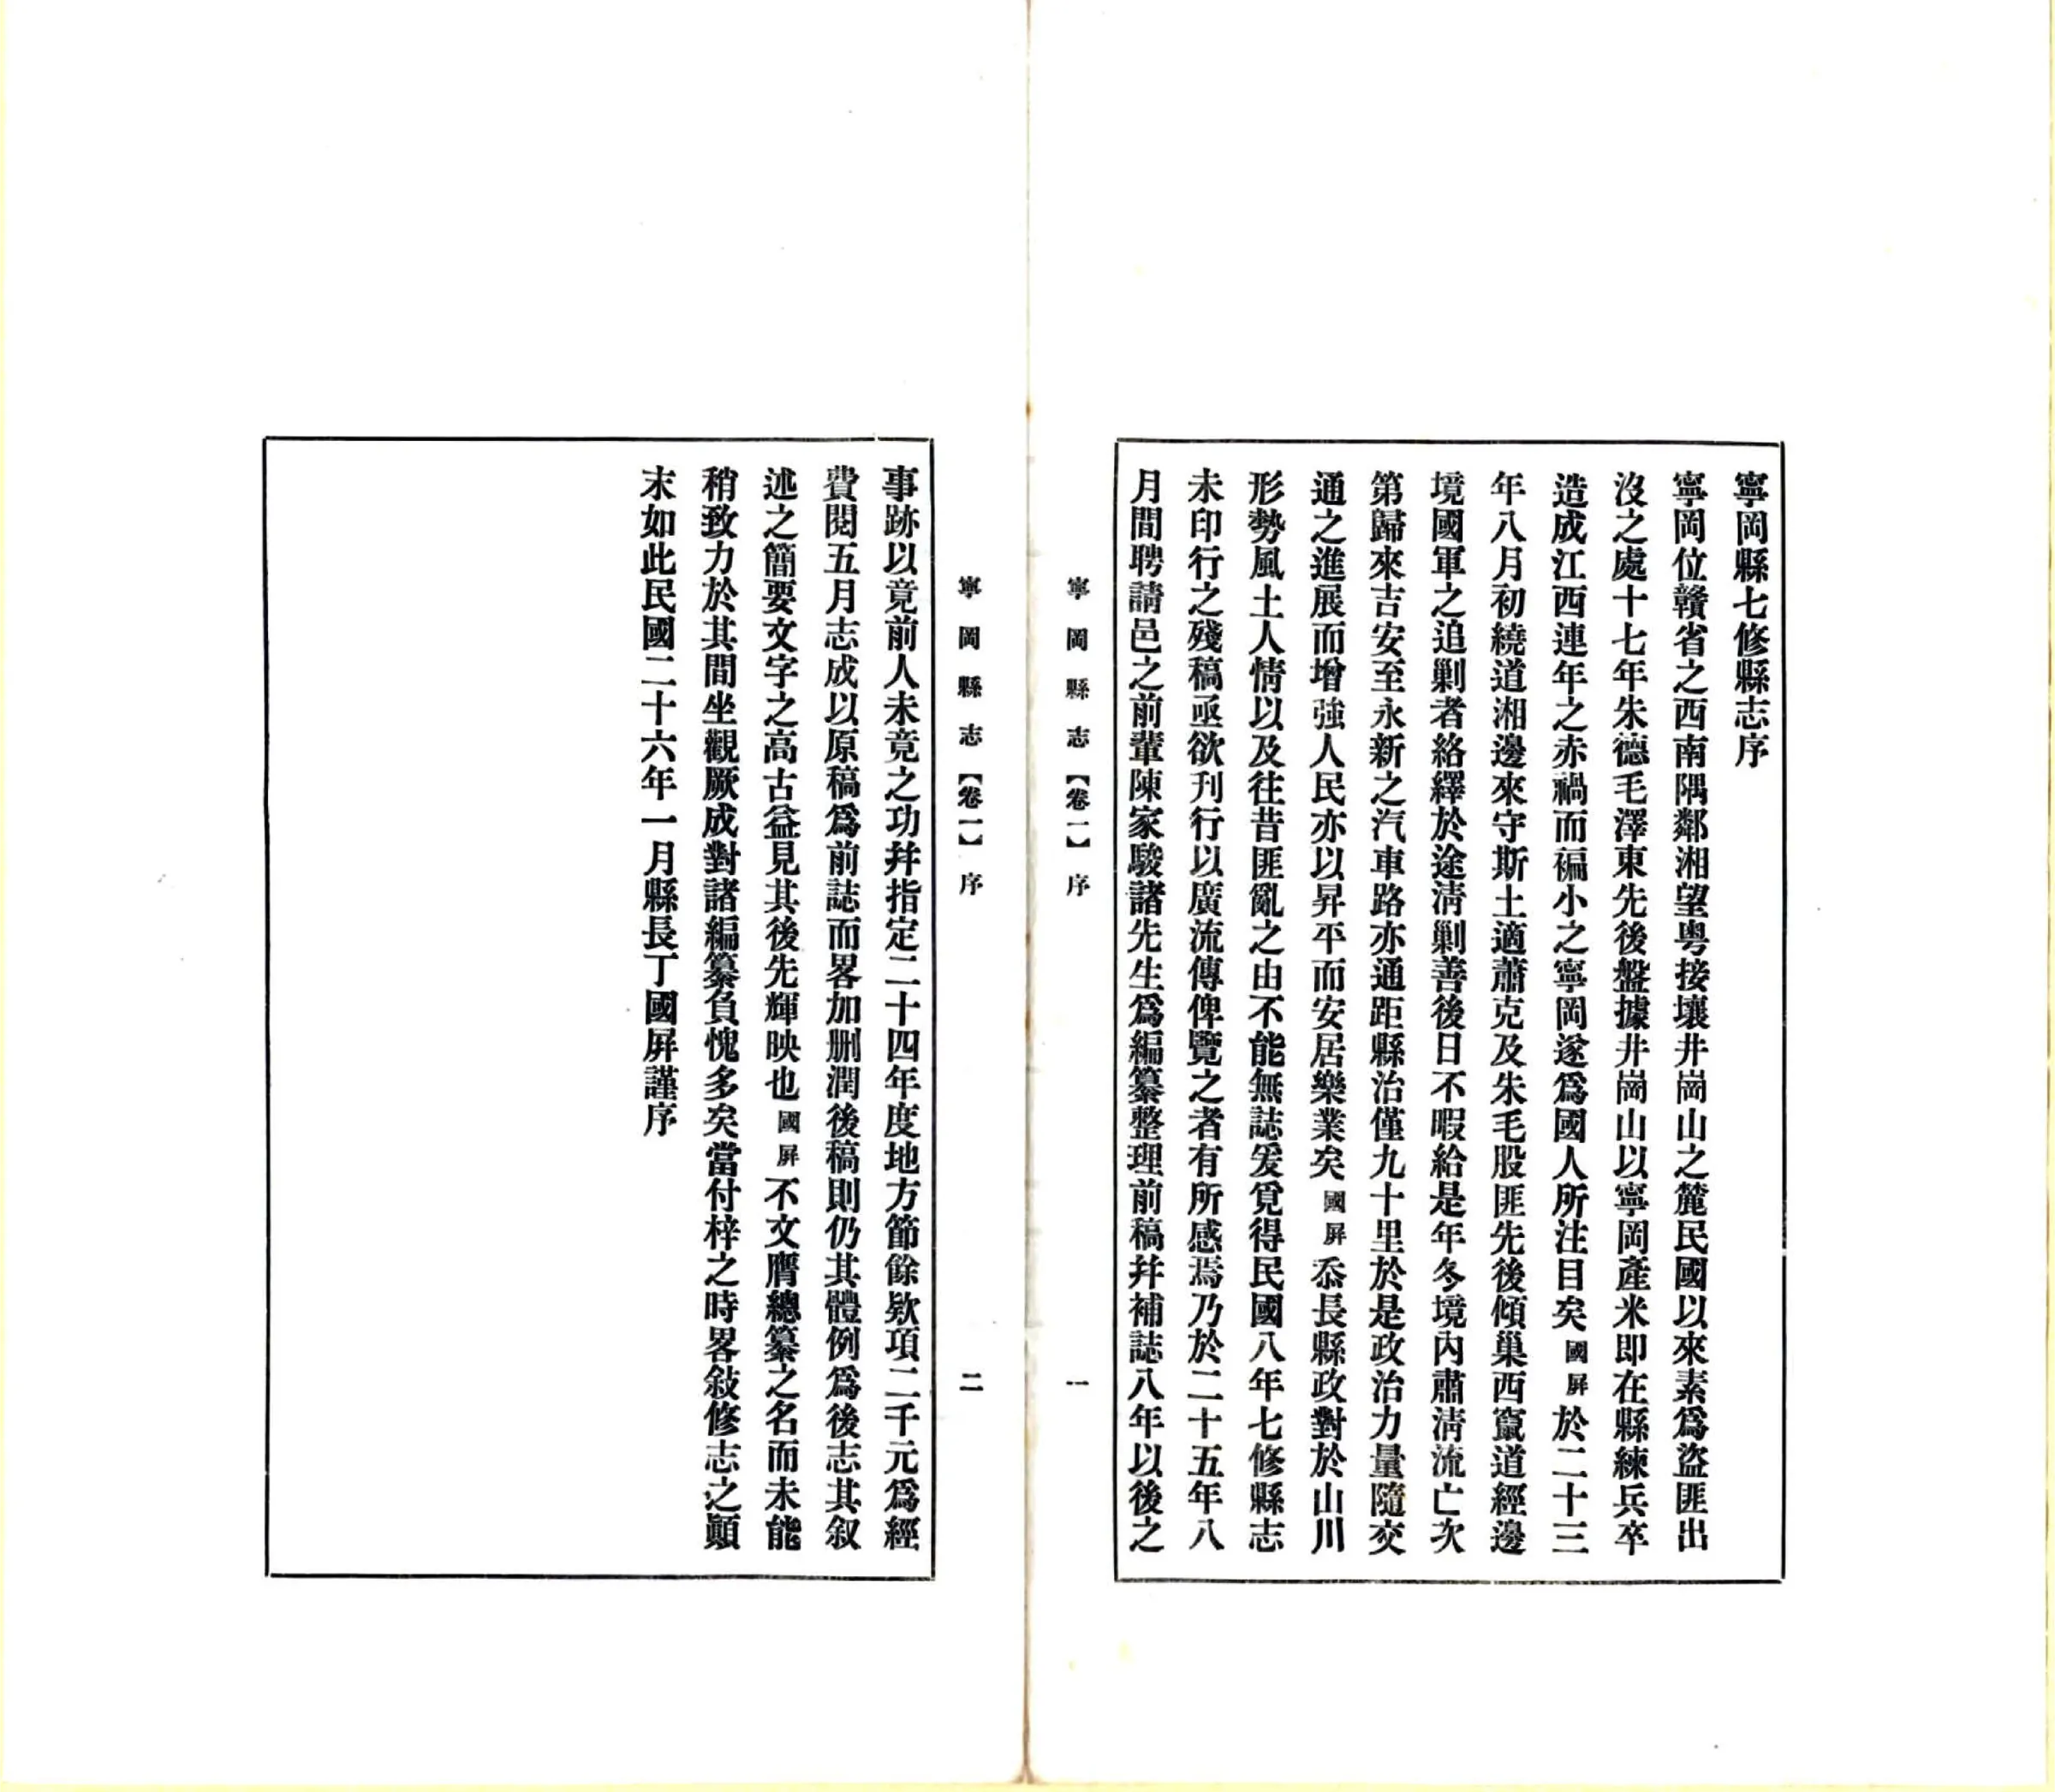 寧岡縣七修縣志序
寧岡位贛省之西南隅鄰湘望粤接壤井崗山之麓民國以來素爲盜匪出
沒之處十七年朱德毛澤東先後盤據井崗山以寧岡產米即在縣練兵卒
造成江西連年之赤禍而褊小之寧岡遂爲國人所注目矣國屏於二十三
年八月初繞道湘邊來守斯土適蕭克及朱毛股匪先後傾巢西竄道經邊
境國軍之追剿者絡繹於途淸剿善後日不暇給是年冬境內肅淸流亡次
第歸來吉安至永新之汽車路亦通距縣治僅九十里於是政治力量隨交
通之進展而增強人民亦以昇平而安居樂業矣國屏忝長縣政對於山川
形勢風土人情以及往昔匪亂之由不能無誌爰覓得民國八年七修縣志
未印行之殘稿亟欲刊行以廣流傳俾覽之者有所感焉乃於二十五年八
月間聘請邑之前輩陳家駿諸先生爲編纂整理前稿幷補誌八年以後之
寧岡縣志【卷一】序 一
寧岡縣志【卷一】序 二
事跡以竟前人未竟之功幷指定二十四年度地方節餘欵項二千元爲經
費閱五月志成以原稿爲前誌而畧加删潤後稿則仍其體例爲後志其叙
述之簡要文字之高古益見其後先輝映也國屏不文膺總纂之名而未能
稍致力於其間坐觀厥成對諸編纂負愧多矣當付梓之時畧敍修志之顚
末如此民國二十六年一月縣長丁國屏謹序